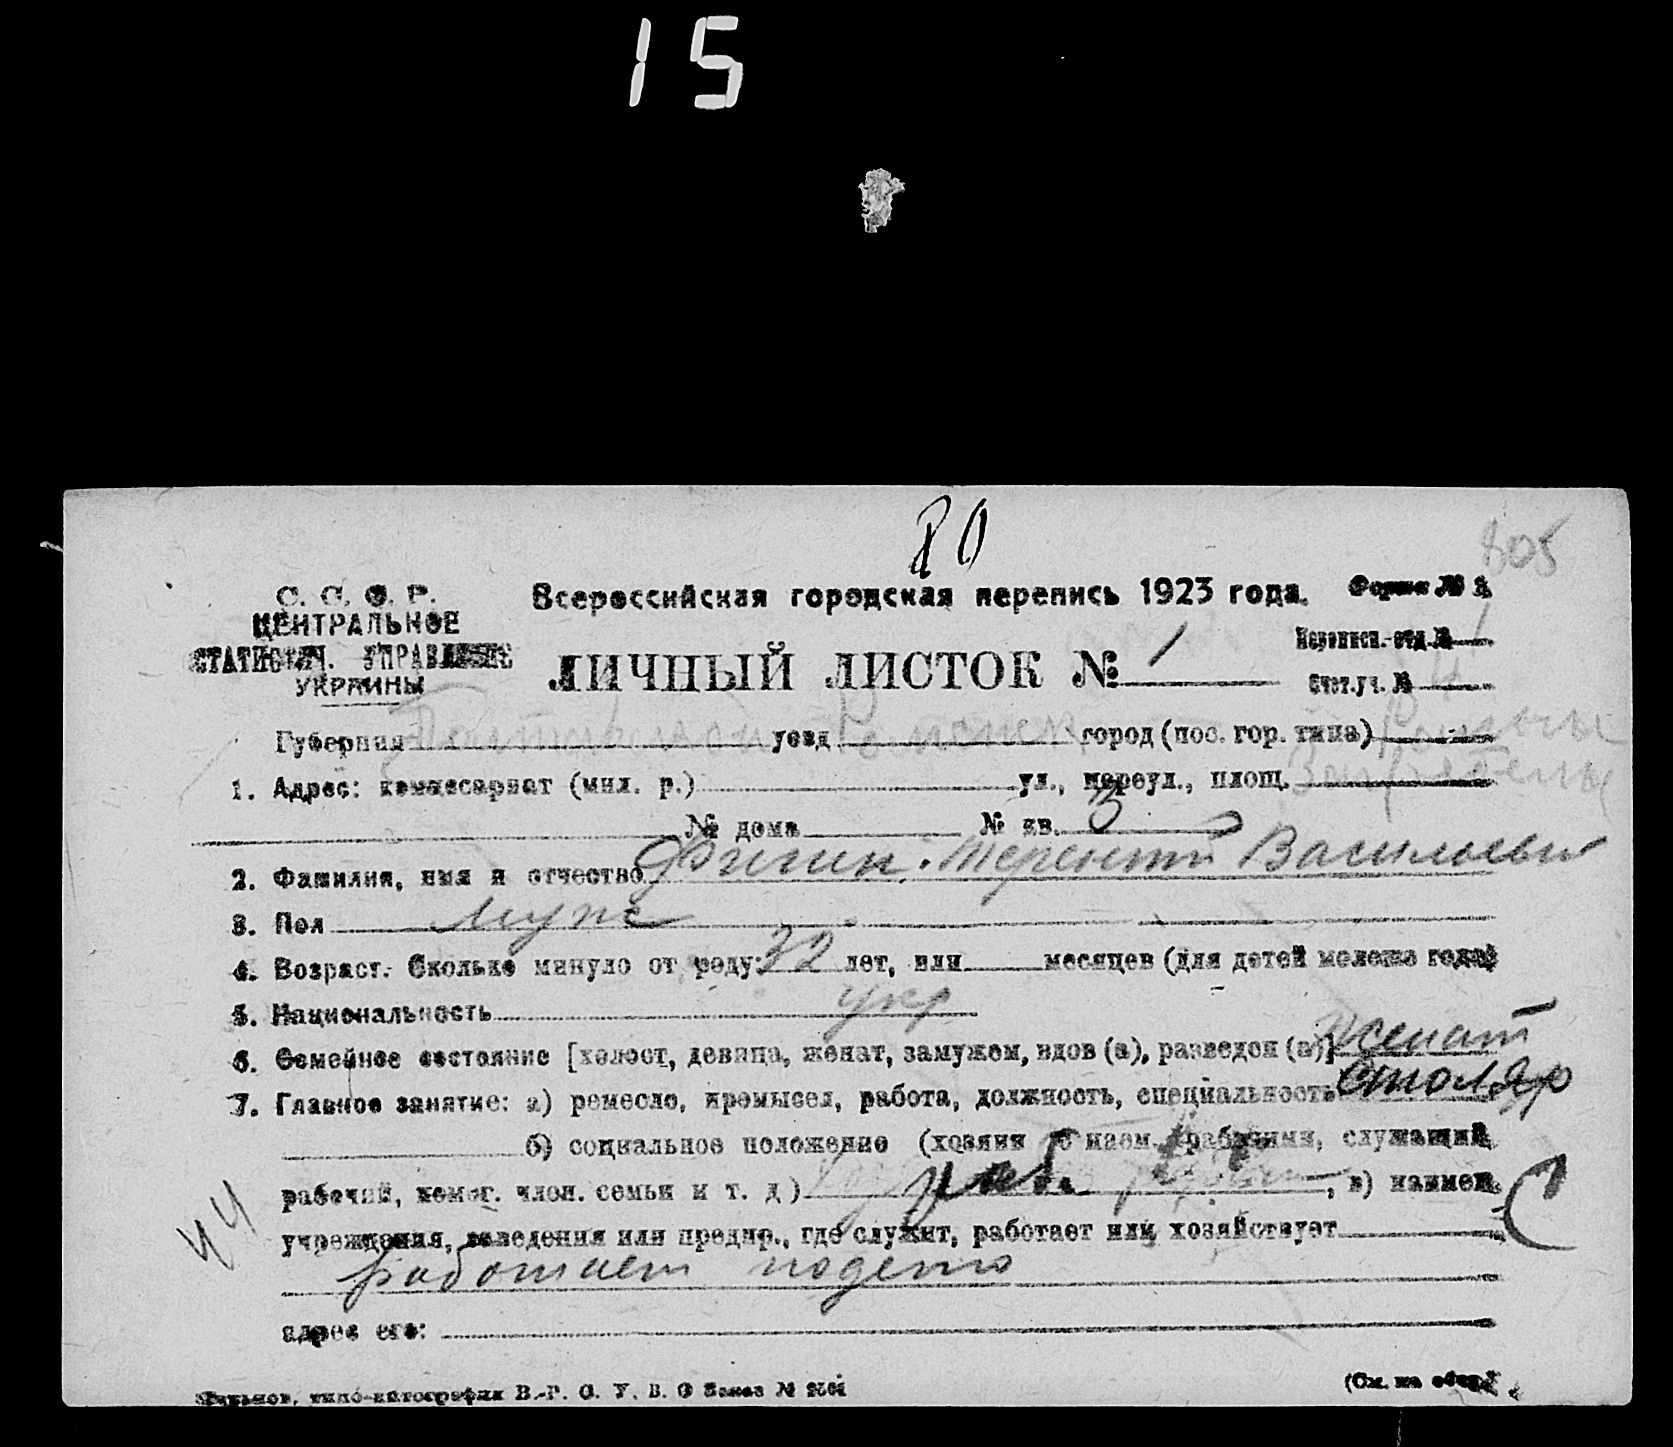 15
80
805
С. С. С. Р.
ЦЕНТРАЛЬНОЕ
СТАТИСТИЧ. УПРАВЛЕНИЕ
УКРАИНЫ
Всероссийская городская перепись 1923 года.
Форма № 2.
ЛИЧНЫЙ ЛИСТОК № 1
Переписн. отд. № 1
Счет. уч. №
Губерния Полтавская уезд Роменск город (пос. гор. типа) Ромны
1. Адрес: комиссариат (мил. р.) ул., переул., площ.
№ дома № кв. 3
2. Фамилия, имя и отчество Терентий Васильевич
3. Пол муж
4. Возраст. Сколько минуло от роду: 32 лет, или месяцев (для детей моложе года)
5. Национальность укр
6. Семейное состояние [холост, девица, женат, замужем, вдов (а), разведен (а)] женат
7. Главное занятие: а) ремесло, промысел, работа, должность, специальность столяр
б) социальное положение (хозяин с наем. рабочими, служащий,
рабочий, помог. член. семьи и т. д.) , в) наимен.
44
учреждения, заведения или предпр., где служит, работает или хозяйствует
работает
адрес его:
типо-литография В.-Р. С. У. В. О Заказ №
(См. на обор.)